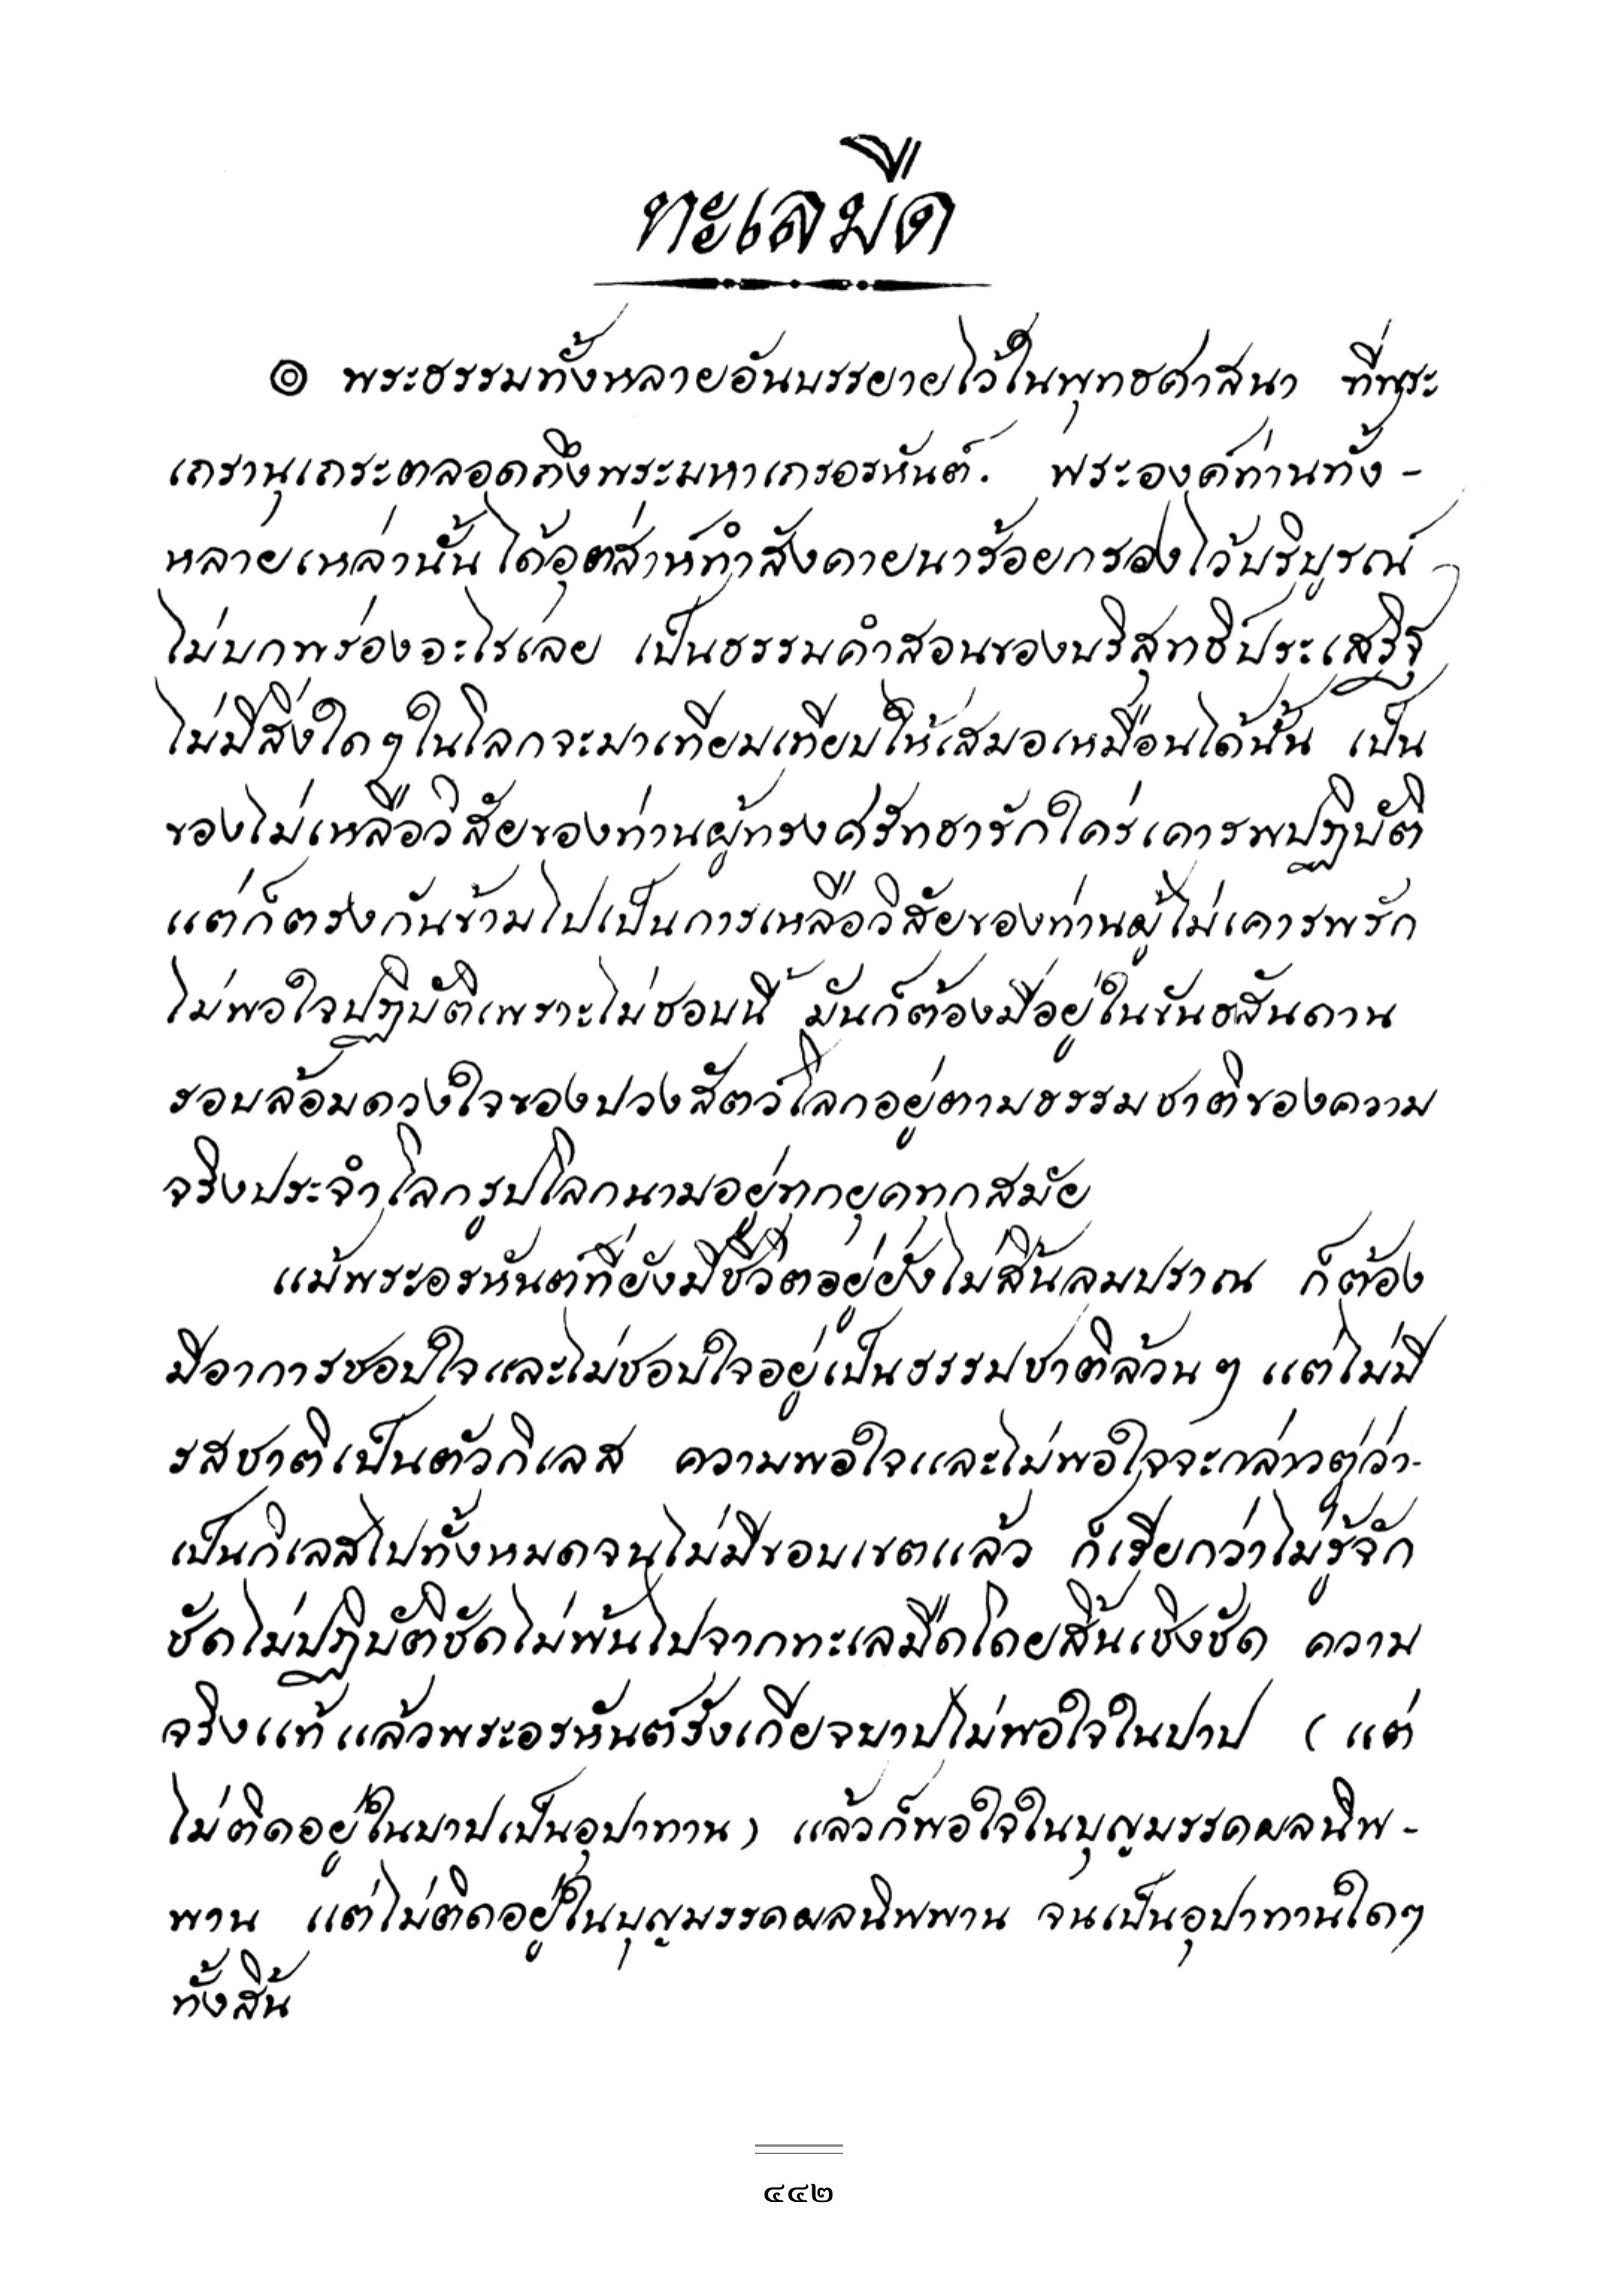 ทะเลมืด
๏ พระธรรมทั้งหลายอันบรรยายไว้ในพุทธศาสนา ที่พระ
เถรานุเถระตลอดถึงพระมหาเถรอรหันต์. พระองค์ท่านทั้ง-
หลายเหล่านั้นได้อุตส่าห์ทำสังคายนาร้อยกรองไว้บริบูรณ์
ไม่บกพร่องอะไรเลย เป็นธรรมคำสอนของบริสุทธิ์ประเสริฐ
ไม่มีสิ่งใดๆในโลกจะมาเทียมเทียบให้เสมอเหมือนได้นั้น เป็น
ของไม่เหลือวิสัยของท่านผู้ทรงศรัทธารักใคร่เคารพปฏิบัติ
แต่ก็ตรงกันข้ามไปเป็นการเหลือวิสัยของท่านผู้ไม่เคารพรัก
ไม่พอใจปฏิบัติเพราะไม่ชอบนี้ มันก็ต้องมีอยู่ในขันธสันดาน
รอบล้อมดวงใจของปวงสัตว์โลกอยู่ตามธรรมชาติของความ
จริงประจำโลกรูปโลกนามอยู่ทุกยุคทุกสมัย
แม้พระอรหันต์ที่ยังมีชีวิตอยู่ยังไม่สิ้นลมปราณ ก็ต้อง
มีอาการชอบใจและไม่ชอบใจอยู่เป็นธรรมชาติล้วนๆ แต่ไม่มี
รสชาติเป็นตัวกิเลส ความพอใจและไม่พอใจจะกล่าวตู่ว่า-
เป็นกิเลสไปทั้งหมดจนไม่มีขอบเขตแล้ว ก็เรียกว่าไม่รู้จัก
ชัดไม่ปฏิบัติชัดไม่พ้นไปจากทะเลมืดโดยสิ้นเชิงชัด ความ
จริงแท้แล้วพระอรหันต์รังเกียจบาปไม่พอใจในบาป (แต่
ไม่ติดอยู่ในบาปเป็นอุปาทาน) แล้วก็พอใจในบุญมรรคผลนิพ-
พาน แต่ไม่ติดอยู่ในบุญมรรคผลนิพพาน จนเป็นอุปาทานใดๆ
ทั้งสิ้น
๔๔๒